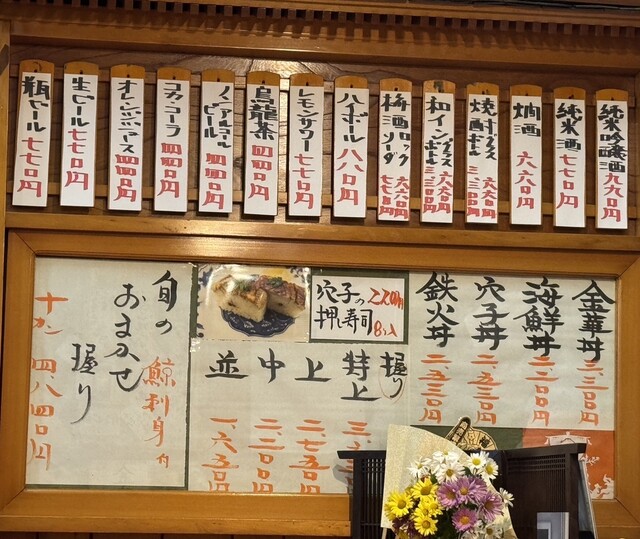 純米吟醸酒 九九〇円
純米酒 七七〇円
燗酒 六六〇円
焼酎 グラス 六六〇円 ボトル 三、三〇〇円
和イン グラス 六六〇円 ボトル 三、三〇〇円
梅酒 ロック 六六〇円 ソーダ 七七〇円
ハイボール 八八〇円
レモンサワー 七七〇円
烏龍茶 四四〇円
ノンアルコールビール 四四〇円
コカ・コーラ 四四〇円
オレンジジュース 四四〇円
生ビール 七七〇円
瓶ビール 七七〇円
金華丼 二、二〇〇円
海鮮丼 二、二〇〇円
穴子丼 二、五三〇円
鉄火丼 二、五三〇円
穴子の
押し寿司
2200円
8コ入
握り
特上 三、
上 二、七五〇円
中 二、二〇〇円
並 一、六五〇円
旬の
おまかせ
握り
鯨刺身付
十カン 四、八四〇円